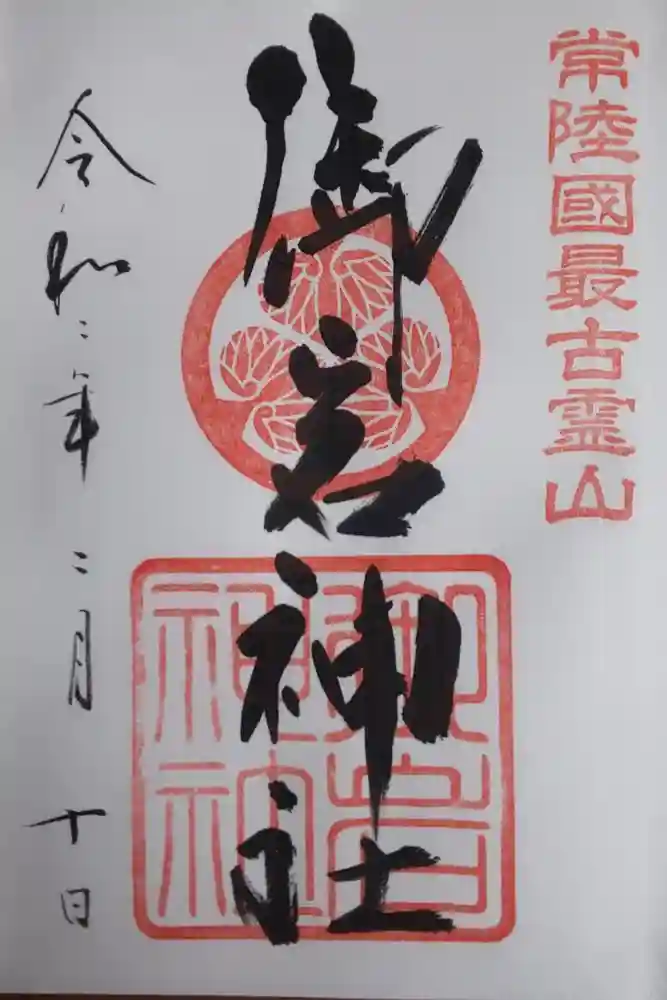 常陸國最古霊山
御岩神社
御岩
神社
令和二年 二月 十日